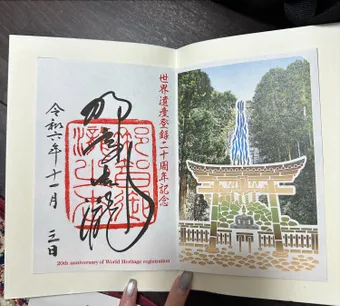 世界遺産登録二十周年記念
那智御瀧
令和六年十一月三日
20th anniversary of World Heritage registration